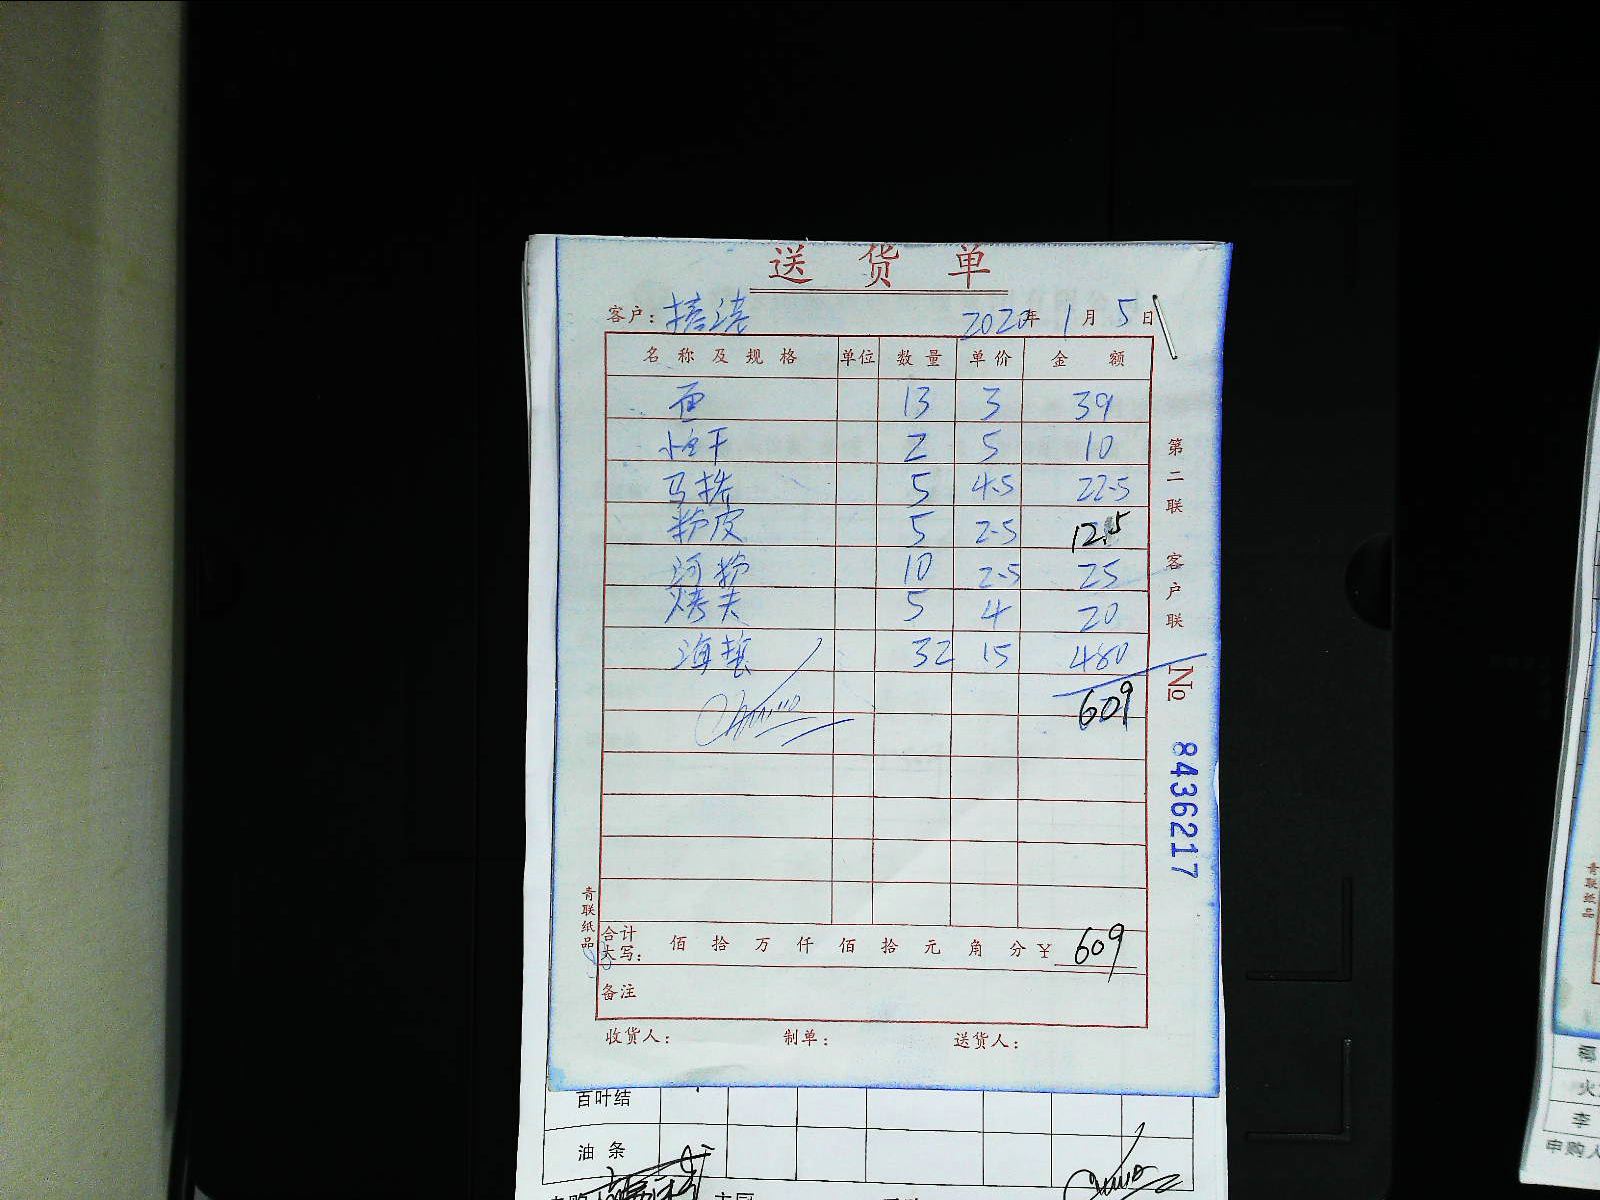 送货单
客户： 2020年1月5日
名称及规格 单位 数量 单价 金额
面 13 3 39
2 5 10
马拚 5 4.5 22.5
粉皮 5 2.5 12.5
河粉 10 2.5 25
烤夫 5 4 20
海蜇 32 15 480
609
第二联 客户联
№ 8436217
青联纸品
合计大写： 佰 拾 万 仟 佰 拾 元 角 分 ¥ 609
备注
收货人： 制单： 送货人：
百叶结
油条
青联纸品
火
李
申购人